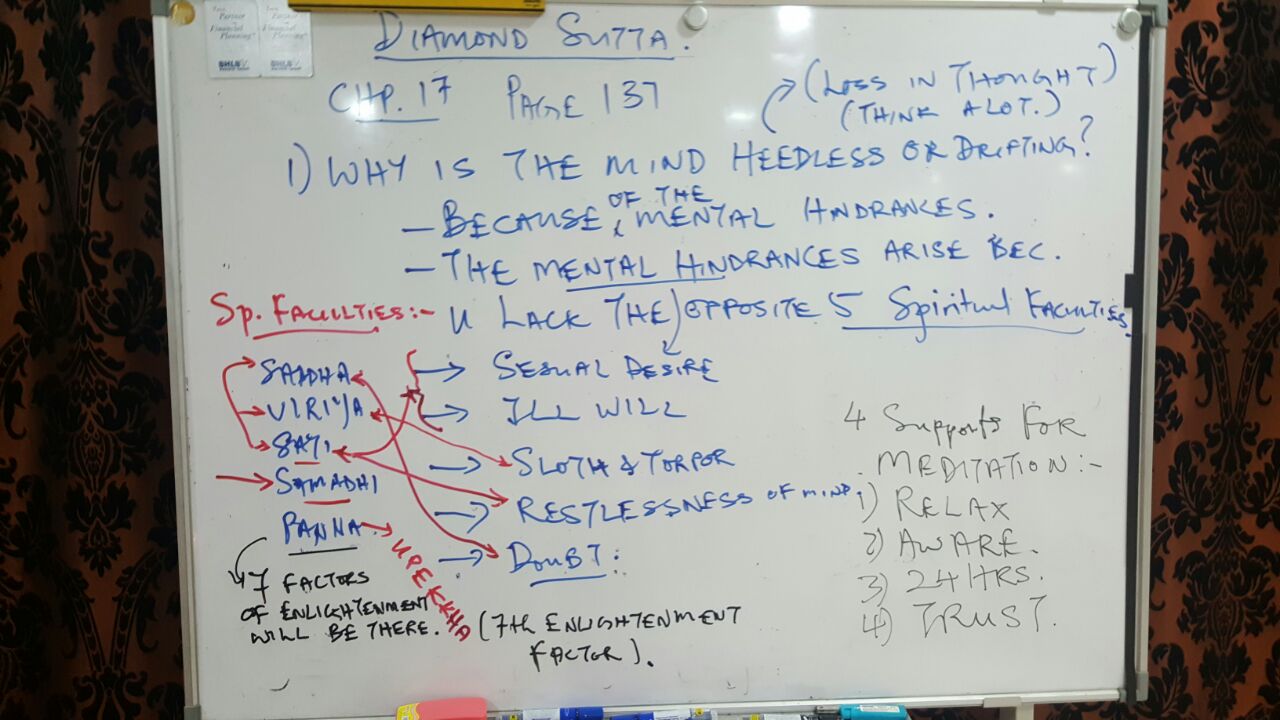 Partner
Financial
Planning
Partner
Financial
Planning
DIAMOND SUTTA.
CHP. 17 PAGE 137
(LOSS IN THOUGHT)
(THINK A LOT.)
1) WHY IS THE MIND HEEDLESS OR DRIFTING?
OF THE
- BECAUSE MENTAL HINDRANCES.
- THE MENTAL HINDRANCES ARISE BEC.
Sp. FACULTIES:- U LACK THE OPPOSITE 5 Spiritual FACULTIES.
SADDHA
VIRIYA
SATI
SAMADHI
PANNA
UPEKKHA
7 FACTORS
OF ENLIGHTENMENT
WILL BE THERE.
(7th ENLIGHTENMENT
FACTOR).
SEXUAL DESIRE
ILL WILL
SLOTH & TORPOR
RESTLESSNESS OF MIND.
DOUBT:
4 Supports FOR
MEDITATION:-
1) RELAX
2) AWARE.
3) 24 HRS.
4) TRUST.